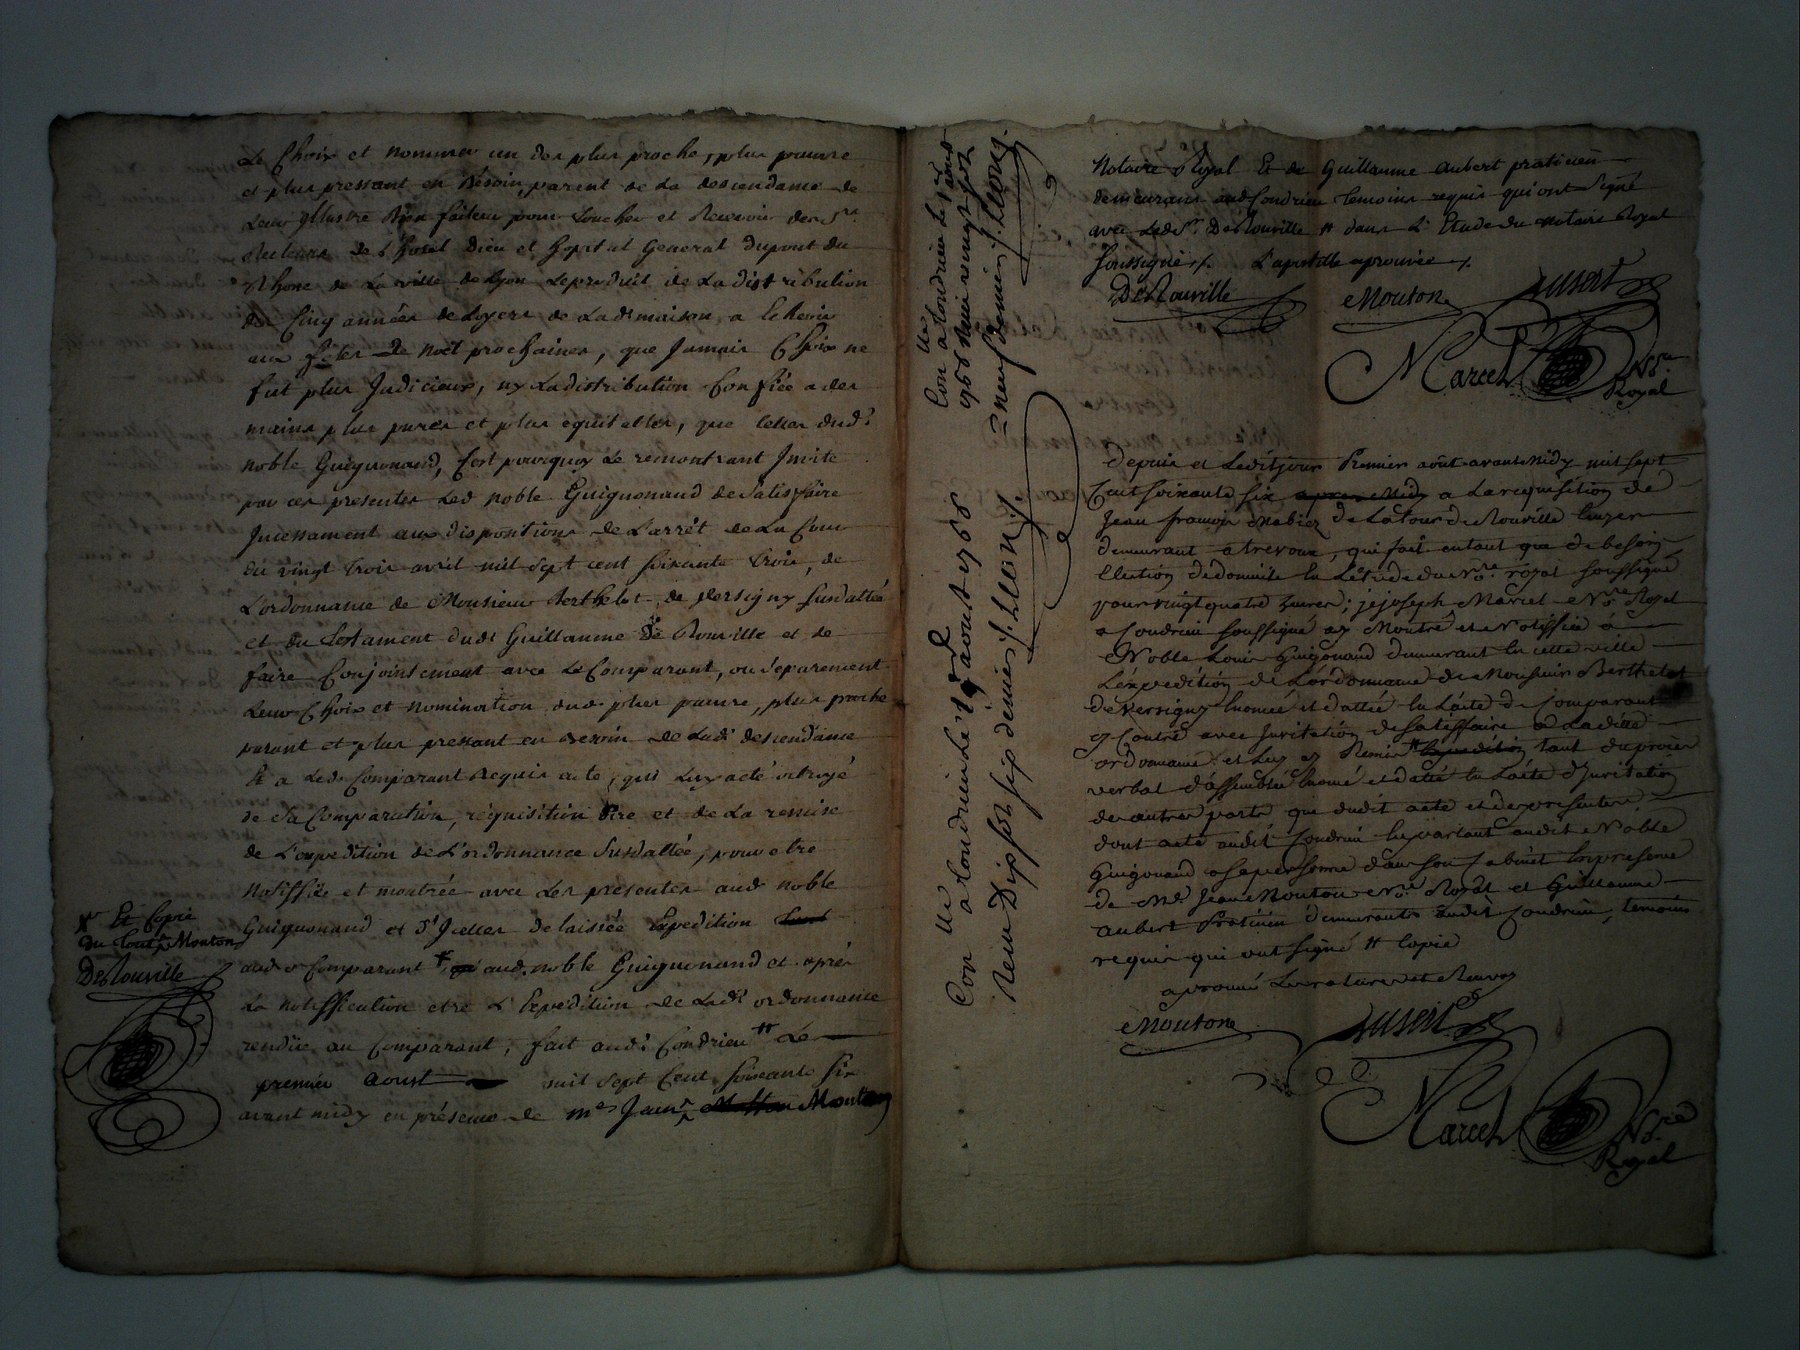 Le Choix et nommer un des plus proche, plus pauvre
et plus pressant en Besoin, parent de La descendance de
Leur Illustre Bien faiteur pour toucher et Recevoir des Srs
Recteurs de L'hotel Dieu et hopital General du pont du
Rhone de La ville de Lyon Le produit de La distribution
des Cinq années de Loyers de Lad. maison a Echeoir
aux fetes de Noël prochaines, que Jamais Choix ne
fut plus Judicieux, ny La distribution Confiée a des
mains plus pures et plus equitables, que celles dudt
noble Guigonand, C'est pourquoy Le remontrant Invite
par ces presentes Led noble Guigonand de Satisfaire
Incessament aux dispositions de L'arrêt de La Cour
du vingt trois avril mil sept cent soixante trois, de
L'ordonnance de Monsieur Berthelot de Versigny susdattée
et du testament dudt Guillaume De Rouville et de
faire Conjointement avec Le Comparant, ou separement
Leur Choix et nomination dud. plus pauvre, plus proche
parant et plus pressant en besoin de Ladt descendance
Et a Led. Comparant Requis acte, qui Luy a été octroyé
de Sa Comparution, requisition Dire et de La remise
de L'expedition de L'ordonnance Susdattée, pour etre
notiffiée et montrée avec Les presentes aud. noble
Guigonand et d'Icelles delaissée Expedition
aud. Comparant aud. noble Guigonand et après
La notiffication etre L'Expedition de Ladt ordonnance
rendüe au Comparant, fait audt Condrieu # Le
premier Aoust mil sept Cent Soixante Six
avant midy en présence de me Jean Mouton
Et Copie
du tout Mouton
DeRouville
Con lle a Condrieu le 1er aoust
1766 Reçu vingt six sols
neuf deniers ./. LLeons
Con lle a Condrieu le 1er aoust 1766
Reçu Dix sols six deniers ./. LLeons
Notaire Royal Et de Guillaume Aubert praticien
demeurans aud Condrieu temoins requis qui ont Signé
avec Led. Sr DeRouville # dans L'Etude du Notaire Royal
soussigné ./. L'apostille aprouvée ./.
DeRouville Mouton Aubert
Marcel Nre
Royal
Depuis et Ledit jour Premier août avant Midy mil sept
Cent soixante six apres Midy a La requisition de
Jean françois Mabiez de La Tour de Rouville
demeurant a trevoux, qui fait en tant que de besoin
Election de domicile En L'etude du Nre royal soussigné
pour vingt quatre heures; je joseph Marcel Nre Royal
a Condrieu soussigné ay Montré et Notiffié a
Noble Louis Guigonand demeurant En cette ville
L'expedition de L'ordonnance de Monsieur Berthelot
de Versigny Enoncée et dattée En L'acte de Comparant
cy Contre avec Invitation de Satisffaire a Ladite
ordonnance et Luy ay Remis # tant du procès
verbal d'assemblée Enoncé et datté En L'acte d'Invitation
de autres parts que dudit acte et des presentes
dont acte audit Condrieu En parlant audit Noble
Guigonand a sa personne dans son Cabinet En presence
de Me Jean Mouton Nre Royal et Guillaume
Aubert Praticien demeurants audit Condrieu, temoins
requis qui ont signé # Copie
aprouvé La rature et Le Renvoy
Mouton Aubert
Marcel Nre
Royal